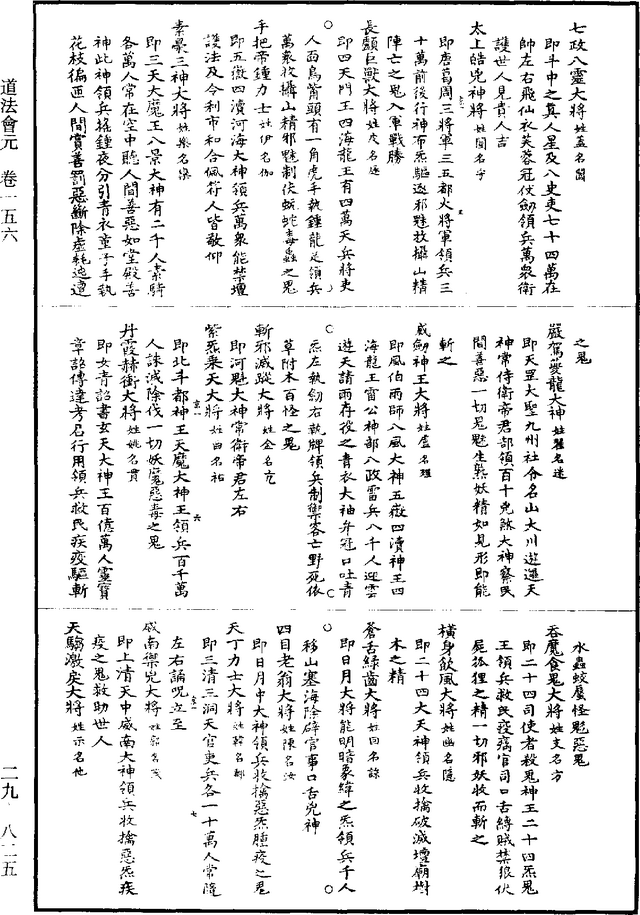 七政八靈大將姓孟名閭
即斗中之真人星及八史吏七十四萬在
帥左右飛仙衣芙蓉冠仗劍領兵萬衆衛
護世人見貴人吉
太上皓兇神將姓閭名宇
即唐葛周三將軍三五都火將軍領兵三
十萬前後行神布炁驅逐邪魅救攝山精
陣亡之鬼入軍戰勝
長顱巨獸大將姓皮名延
即四天門王四海龍王有四萬天兵將吏
人面鳥觜頭有一角虎手執鍾龍足領兵
萬衆收攝山精邪魅制伏蚖蛇毒蟲之鬼
手把帝鍾力士姓伊名伽
即五嶽四瀆河海大神領兵萬衆能禁壇
護法及令利市和合佩符人皆敬仰
素梟三神大將姓柴名榮
即三天大魔王八景大神有二千人素騎
各萬人常在空中聽人間善惡如堂殿善
神此神領兵搖鍾夜分引青衣童子手執
花枝徧匝人間賞善罰惡斷除虛耗遶遭
之鬼
嚴駕夔龍大神姓瞿名逵
即天罡大聖九州社令名山大川遊邏天
神常侍衛帝君部領百十兇煞大神察民
間善惡一切鬼魅生熟妖精如見形即能
斬之
威劍神王大將姓盧名理
即風伯雨師八風大神五嶽四瀆神王四
海龍王雷公神部八政雷兵八千人迎雲
遊天請雨存役之青衣大袖弁冠口吐青
炁左執劍右執牌領兵制禦客亡野死依
草附木百怪之鬼
斬邪滅蹤大將姓金名亢
即河魁大神常衛帝君左右
紫炁乘天大將姓田名祐
即北斗都神王天魔大神王領兵百千萬
人誅滅除伐一切妖魔惡毒之鬼
丹霞赫衝大將姓姚名貫
即女青詔書玄天大神王百億萬人靈寶
章詔傳達考召行用領兵救民疾疫驅斬
水蟲蛟蜃怪魅惡鬼
吞魔食鬼大將姓支名方
即二十四司使者殺鬼神王二十四炁鬼
王領兵救民疫癘官司口舌縛賊禁狼伏
屍狐狸之精一切邪妖收而斬之
橫身飲風大將姓幽名隱
即二十四大天神領兵收擒破滅壇廟樹
木之精
蒼舌綠齒大將姓回名諒
即日月大將能明暗象緯之炁領兵千人
移山塞海除辟官事口舌兇神
四目老翁大將姓陳名汝
即日月中大神領兵收擒惡炁腫疫之鬼
天丁力士大將姓韓名都
即三清三洞天官吏兵各一十萬人常隨
左右誦呪立至
威南禦兇大將姓郭名茂
即上清天中威南大神領兵收擒惡炁疾
疫之鬼救助世人
天騶激戾大將姓示名他
道法會元 卷一五六
二九·八二五